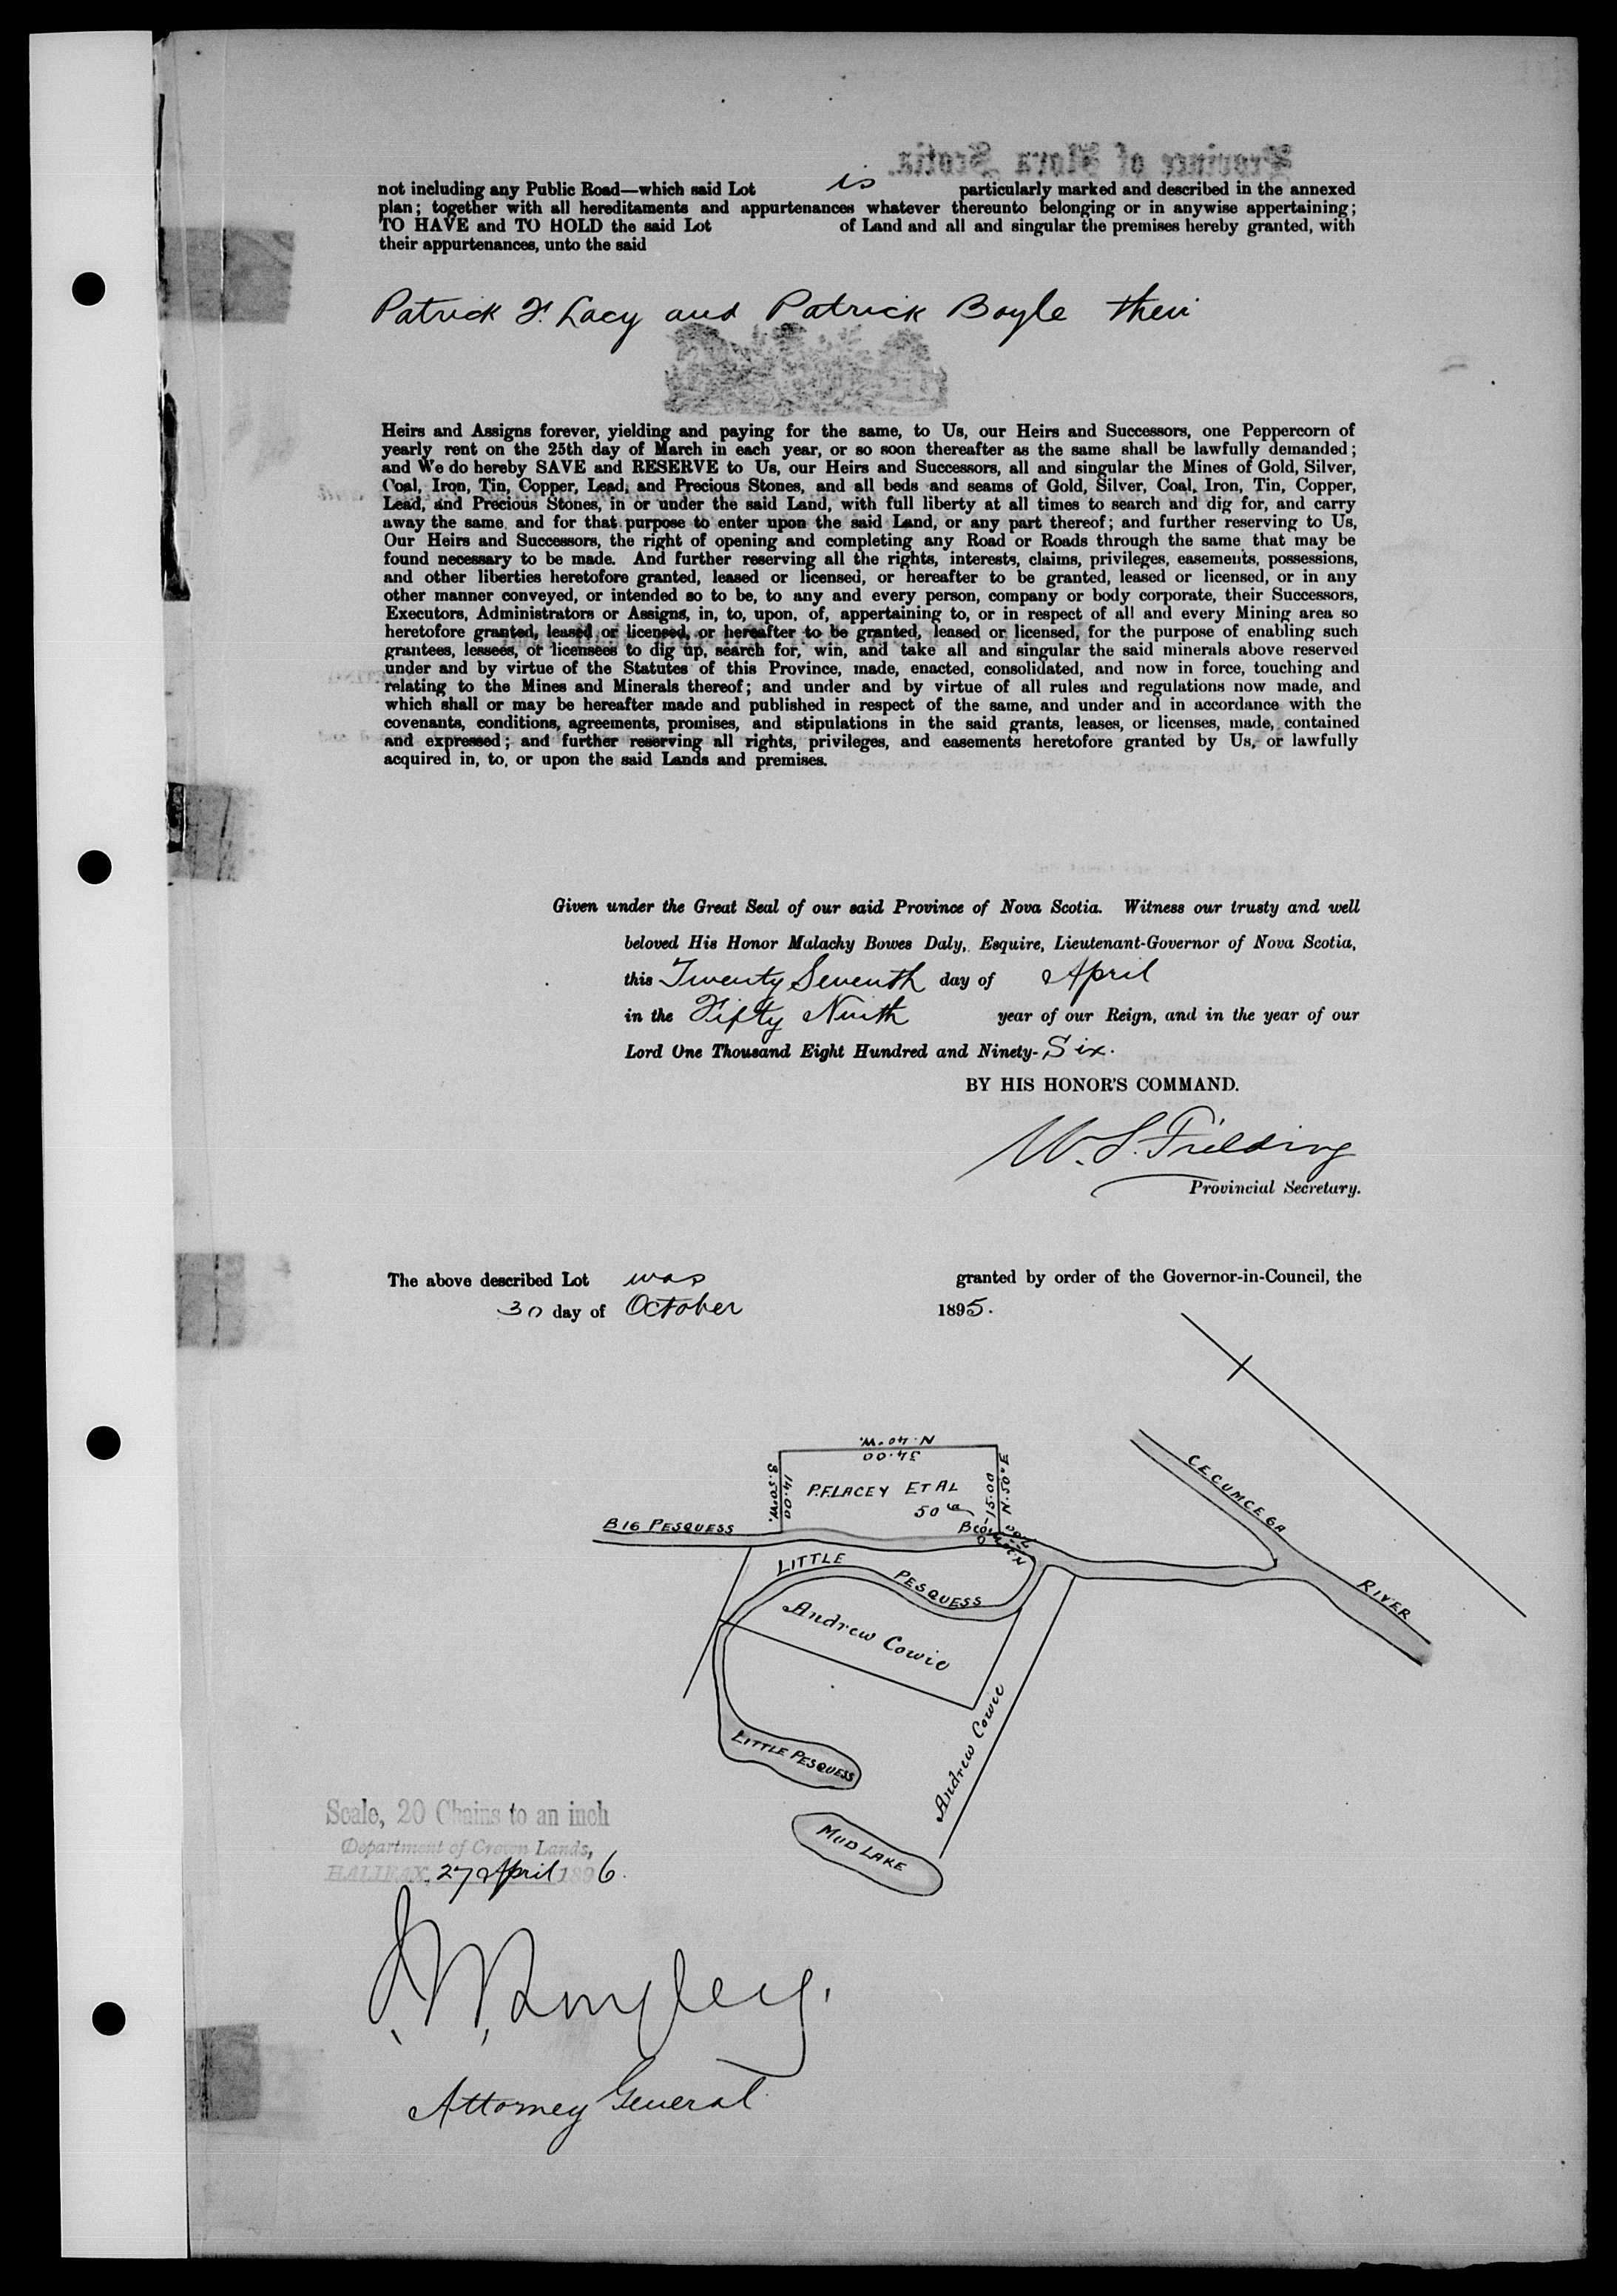 not including any Public Road—which said Lot is particularly marked and described in the annexed
plan; together with all hereditaments and appurtenances whatever thereunto belonging or in anywise appertaining;
TO HAVE and TO HOLD the said Lot of Land and all and singular the premises hereby granted, with
their appurtenances, unto the said
Patrick F. Lacy and Patrick Boyle their
Heirs and Assigns forever, yielding and paying for the same, to Us, our Heirs and Successors, one Peppercorn of
yearly rent on the 25th day of March in each year, or so soon thereafter as the same shall be lawfully demanded;
and We do hereby SAVE and RESERVE to Us, our Heirs and Successors, all and singular the Mines of Gold, Silver,
Coal, Iron, Tin, Copper, Lead, and Precious Stones, and all beds and seams of Gold, Silver, Coal, Iron, Tin, Copper,
Lead, and Precious Stones, in or under the said Land, with full liberty at all times to search and dig for, and carry
away the same, and for that purpose to enter upon the said Land, or any part thereof; and further reserving to Us,
Our Heirs and Successors, the right of opening and completing any Road or Roads through the same that may be
found necessary to be made. And further reserving all the rights, interests, claims, privileges, easements, possessions,
and other liberties heretofore granted, leased or licensed, or hereafter to be granted, leased or licensed, or in any
other manner conveyed, or intended so to be, to any and every person, company or body corporate, their Successors,
Executors, Administrators or Assigns, in, to, upon, of, appertaining to, or in respect of all and every Mining area so
heretofore granted, leased or licensed, or hereafter to be granted, leased or licensed, for the purpose of enabling such
grantees, lessees, or licensees to dig up, search for, win, and take all and singular the said minerals above reserved
under and by virtue of the Statutes of this Province, made, enacted, consolidated, and now in force, touching and
relating to the Mines and Minerals thereof; and under and by virtue of all rules and regulations now made, and
which shall or may be hereafter made and published in respect of the same, and under and in accordance with the
covenants, conditions, agreements, promises, and stipulations in the said grants, leases, or licenses, made, contained
and expressed; and further reserving all rights, privileges, and easements heretofore granted by Us, or lawfully
acquired in, to, or upon the said Lands and premises.
Given under the Great Seal of our said Province of Nova Scotia. Witness our trusty and well
beloved His Honor Malachy Bowes Daly, Esquire, Lieutenant-Governor of Nova Scotia,
this Twenty Seventh day of April
in the Fifty Ninth year of our Reign, and in the year of our
Lord One Thousand Eight Hundred and Ninety-Six.
BY HIS HONOR'S COMMAND.
W. S. Fielding
Provincial Secretary.
The above described Lot was granted by order of the Governor-in-Council, the
30 day of October 1895.
N. 40° W.
34.00
S. 50° W.
14.00
P. F. LACEY ET AL
50 a
15.00
N. 50° E
BIG PESQUESS
CECUMCEGA
RIVER
LITTLE
PESQUESS
Andrew Cowie
Andrew Cowie
LITTLE PESQUESS
MUD LAKE
Scale, 20 Chains to an inch
Department of Crown Lands,
HALIFAX, 27 April 1896.
J. W. Longley.
Attorney General